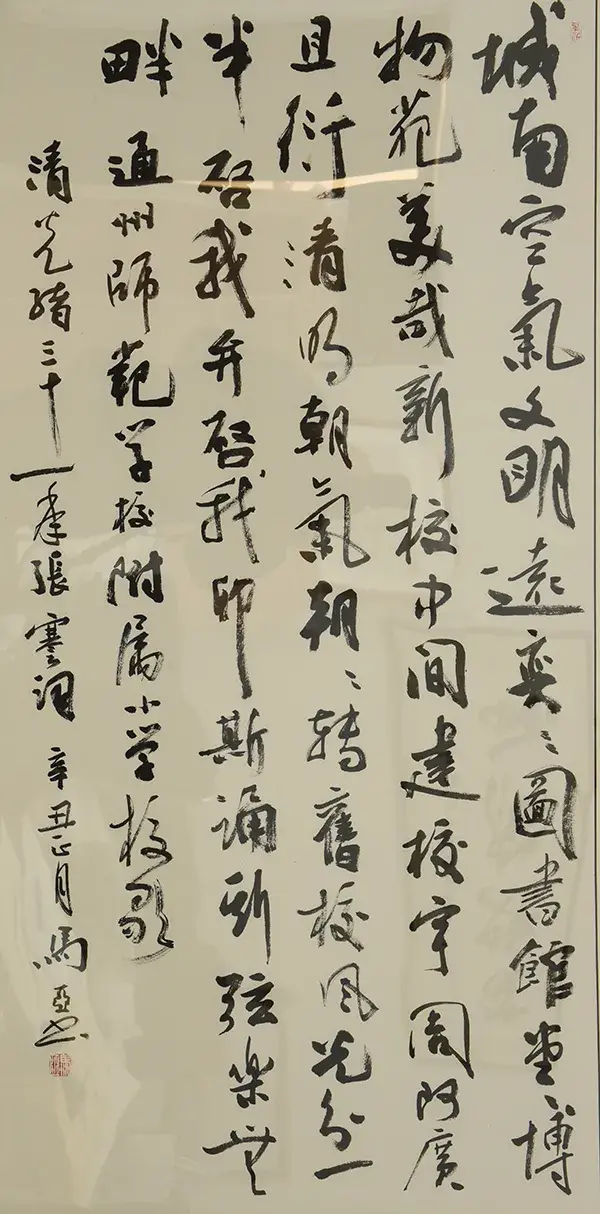 城南空氣文明遠奕〻圖書館堂〻博
物苑美哉新校中間建校宇周阿廣
且衍清明朝氣朝〻轉舊校風光分一
半啓我弁啓我卯斯誦斯弦樂無
畔 通州師範学校附属小学校歌
清光緒三十一年張謇詞 辛丑正月 馬亞